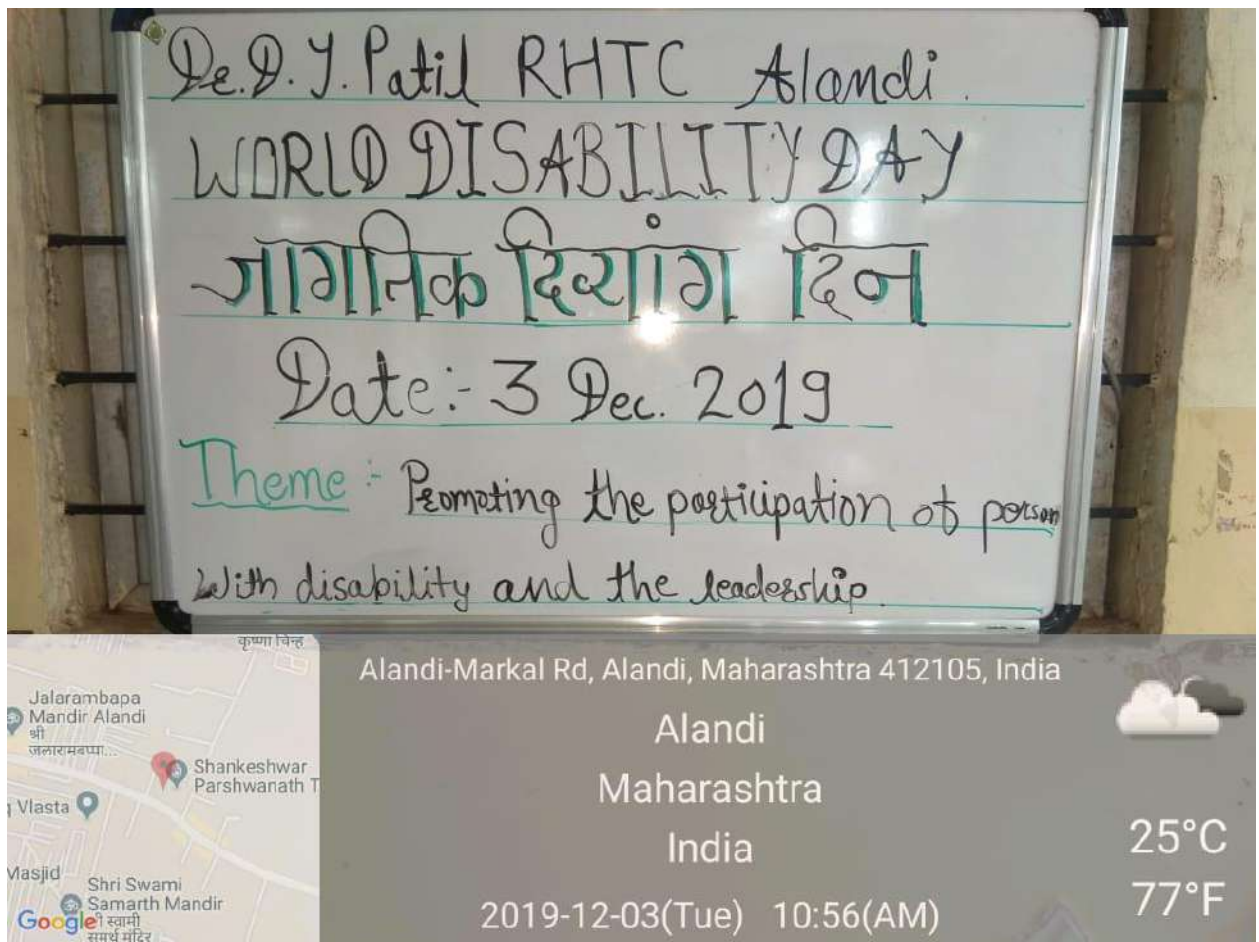 Dr. D. Y. Patil RHTC Alandi.
WORLD DISABILITY DAY
जागतिक दिव्यांग दिन
Date:- 3 Dec. 2019
Theme:- Promoting the participation of person
with disability and the leadership.
कृष्णा चिन्ह
Jalarambapa
Mandir Alandi
श्री
जलारामबप्पा...
Shankeshwar
Parshwanath T
Vlasta
Masjid
Shri Swami
Samarth Mandir
Google
श्री स्वामी
समर्थ मंदिर
Alandi-Markal Rd, Alandi, Maharashtra 412105, India
Alandi
Maharashtra
India
2019-12-03(Tue) 10:56(AM)
25°C
77°F